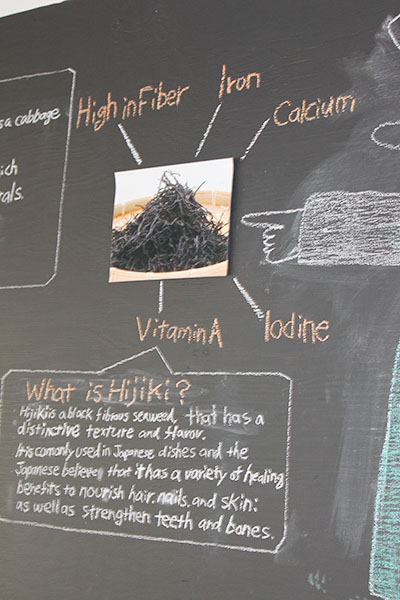 s a cabbage
ich
rals.
High in Fiber
Iron
Calcium
Vitamin A
Iodine
What is Hijiki?
Hijiki is a black fibrous seaweed, that has a
distinctive texture and flavor.
It is comonly used in Japanese dishes and the
Japanese believe that it has a variety of healing
benefits to nourish hair, nails, and skin:
as well as strengthen teeth and bones.